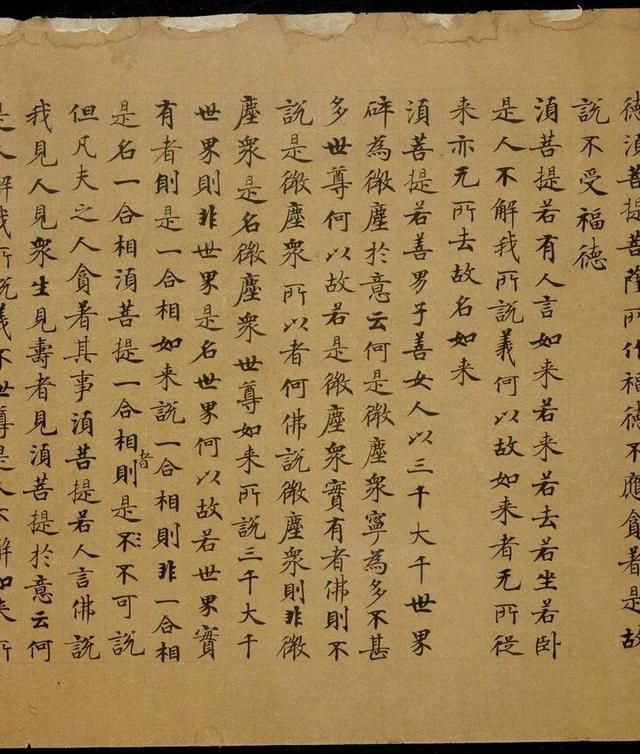 德湏菩提菩薩所作福德不應貪著是故
說不受福德
湏菩提若有人言如来若来若去若坐若卧
是人不解我所說義何以故如来者无所従
来亦无所去故名如来
湏菩提若善男子善女人以三千大千世界
碎為微塵於意云何是微塵衆寧為多不甚
多世尊何以故若是微塵衆實有者佛則不
說是微塵衆所以者何佛說微塵衆則非微
塵衆是名微塵衆世尊如来所說三千大千
世界則非世界是名世界何以故若世界實
有者則是一合相如来說一合相則非一合相
是名一合相湏菩提一合相者則是不不可說
但凡夫之人貪著其事湏菩提若人言佛說
我見人見衆生見壽者見湏菩提於意云何
是人解我所說義不世尊是人不解如来所